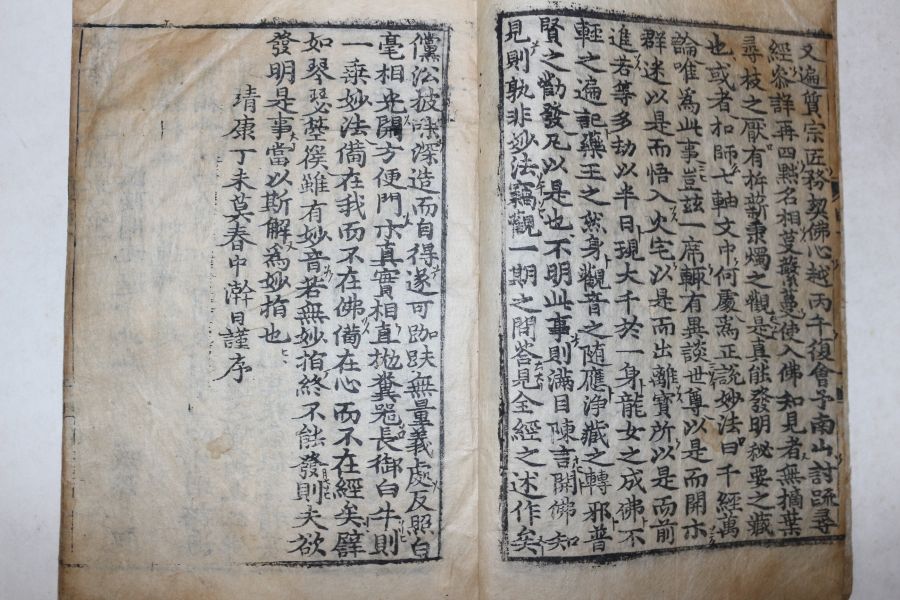 又遍質宗匠務契佛心越丙午復會于南山討䟽尋
經叅詳再四㸃名相蔓䕺蔓使入佛知見者無摘葉
尋枝之厭有析薪秉燭之觀是真能發明秘要之藏
也或者扣師七軸文中何處為正說妙法曰千經萬
論唯為此事豈玆一席輙有異談世尊以是而開示
群迷以是而悟入火宅以是而出離寶所以是而前
進若等多劫以半日現大千於一身龍女之成佛不
輕之遍記藥王之然身觀音之随應淨藏之轉邪普
賢之勸發凡以是也不明此事則滿目陳言開佛知
見則孰非妙法竊觀一期之問答見全經之述作矣
儻㳂披味深造而自得遂可跏趺無量義處反照白
毫相光開方便門示真實相直抛糞噐長御白牛則
一乗妙法備在我而不在佛備在心而不在經矣譬
如琴瑟箜篌雖有妙音若無妙指終不能發則夫欲
發明是事當以斯解為妙指也
靖康丁未莫春中澣日謹序